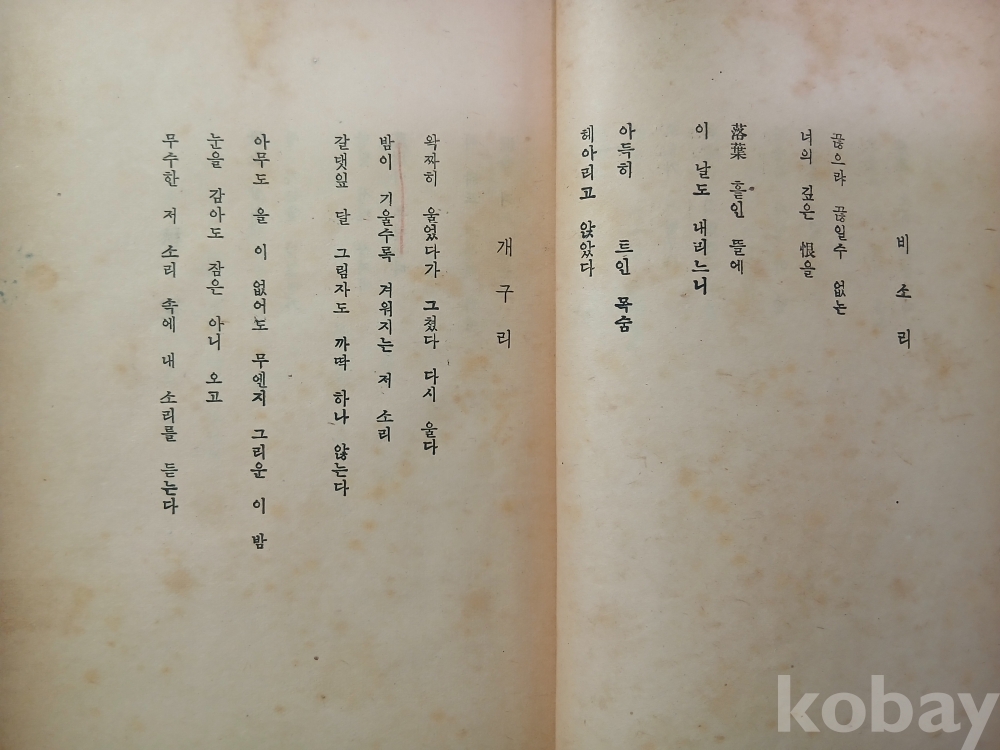 비 소 리
끊으랴 끊일수 없는
너의 깊은 恨을
落葉 흩인 뜰에
이 날도 내리느니
아득히 트인 목숨
헤아리고 앉았다
개 구 리
왁짜히 울었다가 그쳤다 다시 울다
밤이 기울수록 겨워지는 저 소리
갈댓잎 달 그림자도 까딱 하나 않는다
아무도 올 이 없어도 무엔지 그리운 이 밤
눈을 감아도 잠은 아니 오고
무수한 저 소리 속에 내 소리를 듣는다
kobay